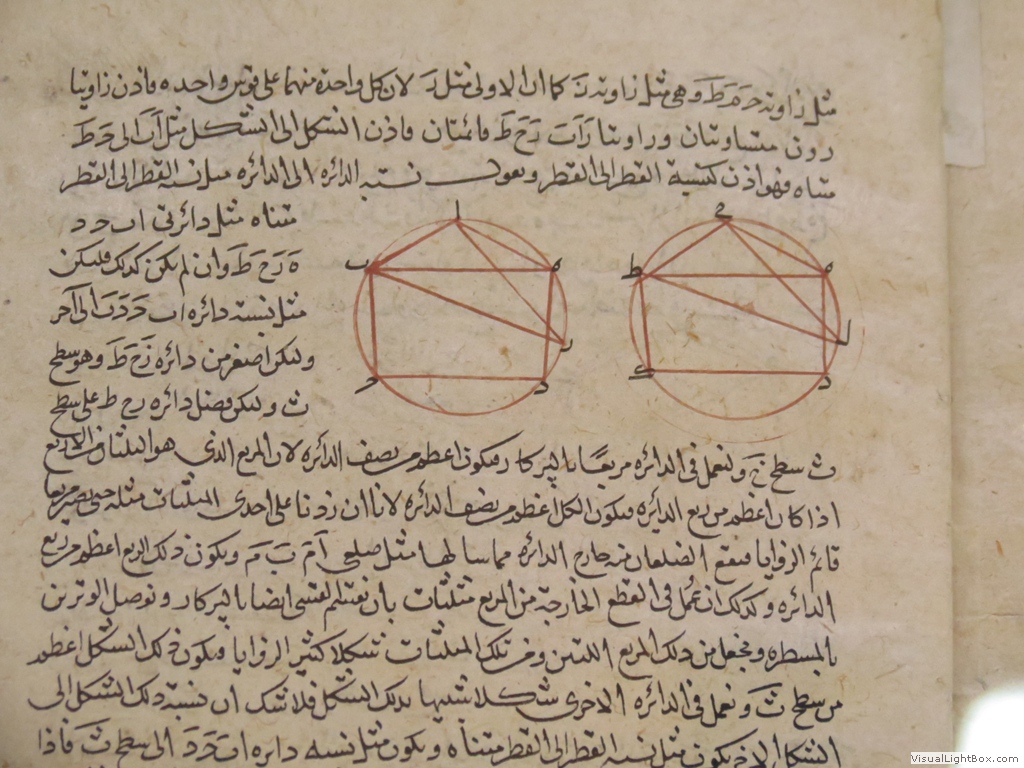 مثل زاوية وهي مثل زاوية كما ان الاولى مثل لان كل واحدة منهما على قوس واحده فاذن زاويتا
متساويتان وزاويتا قائمتان فاذن الشكل الى الشكل مثل الى
مثناه فهو اذن كنسبة القطر الى القطر ونقول نسبه الدائره الى الدائره مثل نسبه القطر الى القطر
مثناه مثل دائرتي اب حد
ه ز ح ط وان لم يكن كذلك فليكن
مثل نسبة دائره اب الى آخر
وليكن اصغر من دائره وهو سطح
ث وليكن فضل دائره على سطح
ا
ب
ه
ر
ح
د
ح
ط
ه
ل
ك
د
ث سطح ولنعمل في الدائره مربعا بالبركار فيكون اعظم من نصف الدائره لان المربع الذي هو
اذا كان اعظم من ربع الدائره فيكون الكل اعظم من نصف الدائره لانا ان زدنا على احدى المثلثات مثله حتى يصير مربعا
قائم الزوايا فيقع الضلعان منه خارج الدائره مماسا لها مثل ضلعي ويكون ذلك المربع اعظم من ربع
الدائره وكذلك ان عمل في القطع الخارجة من المربع مثلثات بان نقسم القسي ايضا بالبركار ونوصل الوترين
بالمسطره ونجعل من ذلك المربع ومن تلك المثلثات شكلا كثير الزوايا ويكون ذلك الشكل اعظم
من سطح ث ونعمل في الدائره الاخرى شكلا شبيها بذلك الشكل فلا شك ان نسبة ذلك الشكل الى
الشكل الاخر يكون مثل نسبه القطر الى القطر مثناه ويكون مثل نسبه دايره الى سطح ث فاذا
VisualLightBox.com